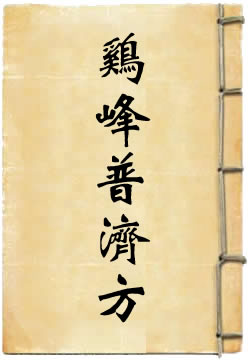 鷄峰普濟方